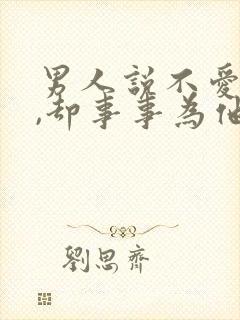 男人說不愛
,却事事為他
劉思齊